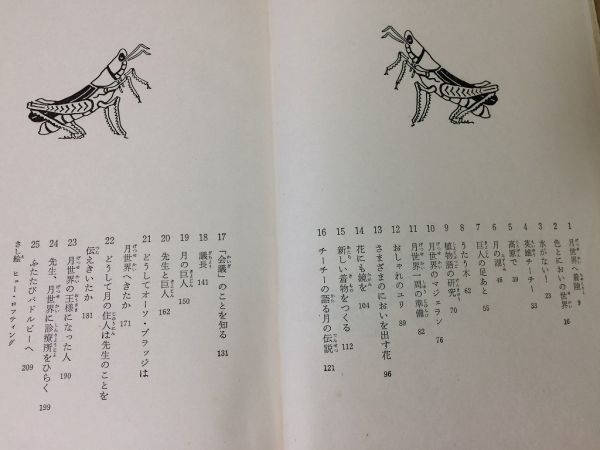 1 月世界へ着陸 9
2 色とにおいの世界 16
3 水がない! 23
4 英雄チーチー 33
5 高原で 39
6 月の湖 46
7 巨人の足あと 55
8 うたう木 62
9 植物語の研究 70
10 月世界のマジェラン 76
11 月世界一周の準備 82
12 おしゃれのユリ 89
13 さまざまのにおいを出す花 96
14 花にも鏡を 104
15 新しい着物をつくる 112
16 チーチーの語る月の伝説 121
17 「会議」のことを知る 131
18 議長 141
19 月の巨人 150
20 先生と巨人 162
21 どうしてオーソ・ブラッジは
月世界へきたか 171
22 どうして月の住人は先生のことを
伝えきいたか 181
23 月世界の王様になった人 190
24 先生、月世界に診療所をひらく 199
25 ふたたびパドルビーへ 209
さし絵 ヒュー・ロフティング